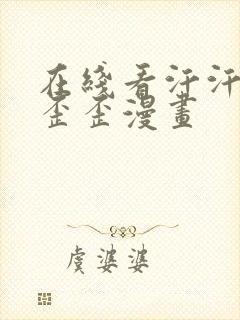 在綫看汗汗
歪歪漫畫
虞婆婆